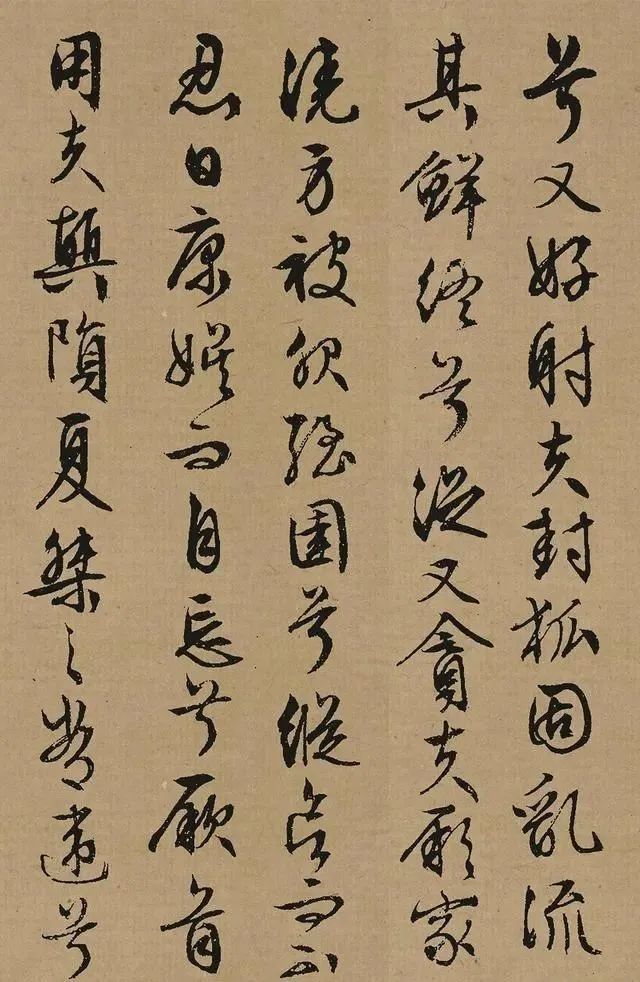 兮又好射夫封狐固亂流
其鮮終兮浞又貪夫厥家
澆方被服強圉兮縱欲而不
忍日康娛而自忘兮厥首
用夫顛隕夏桀之常違兮